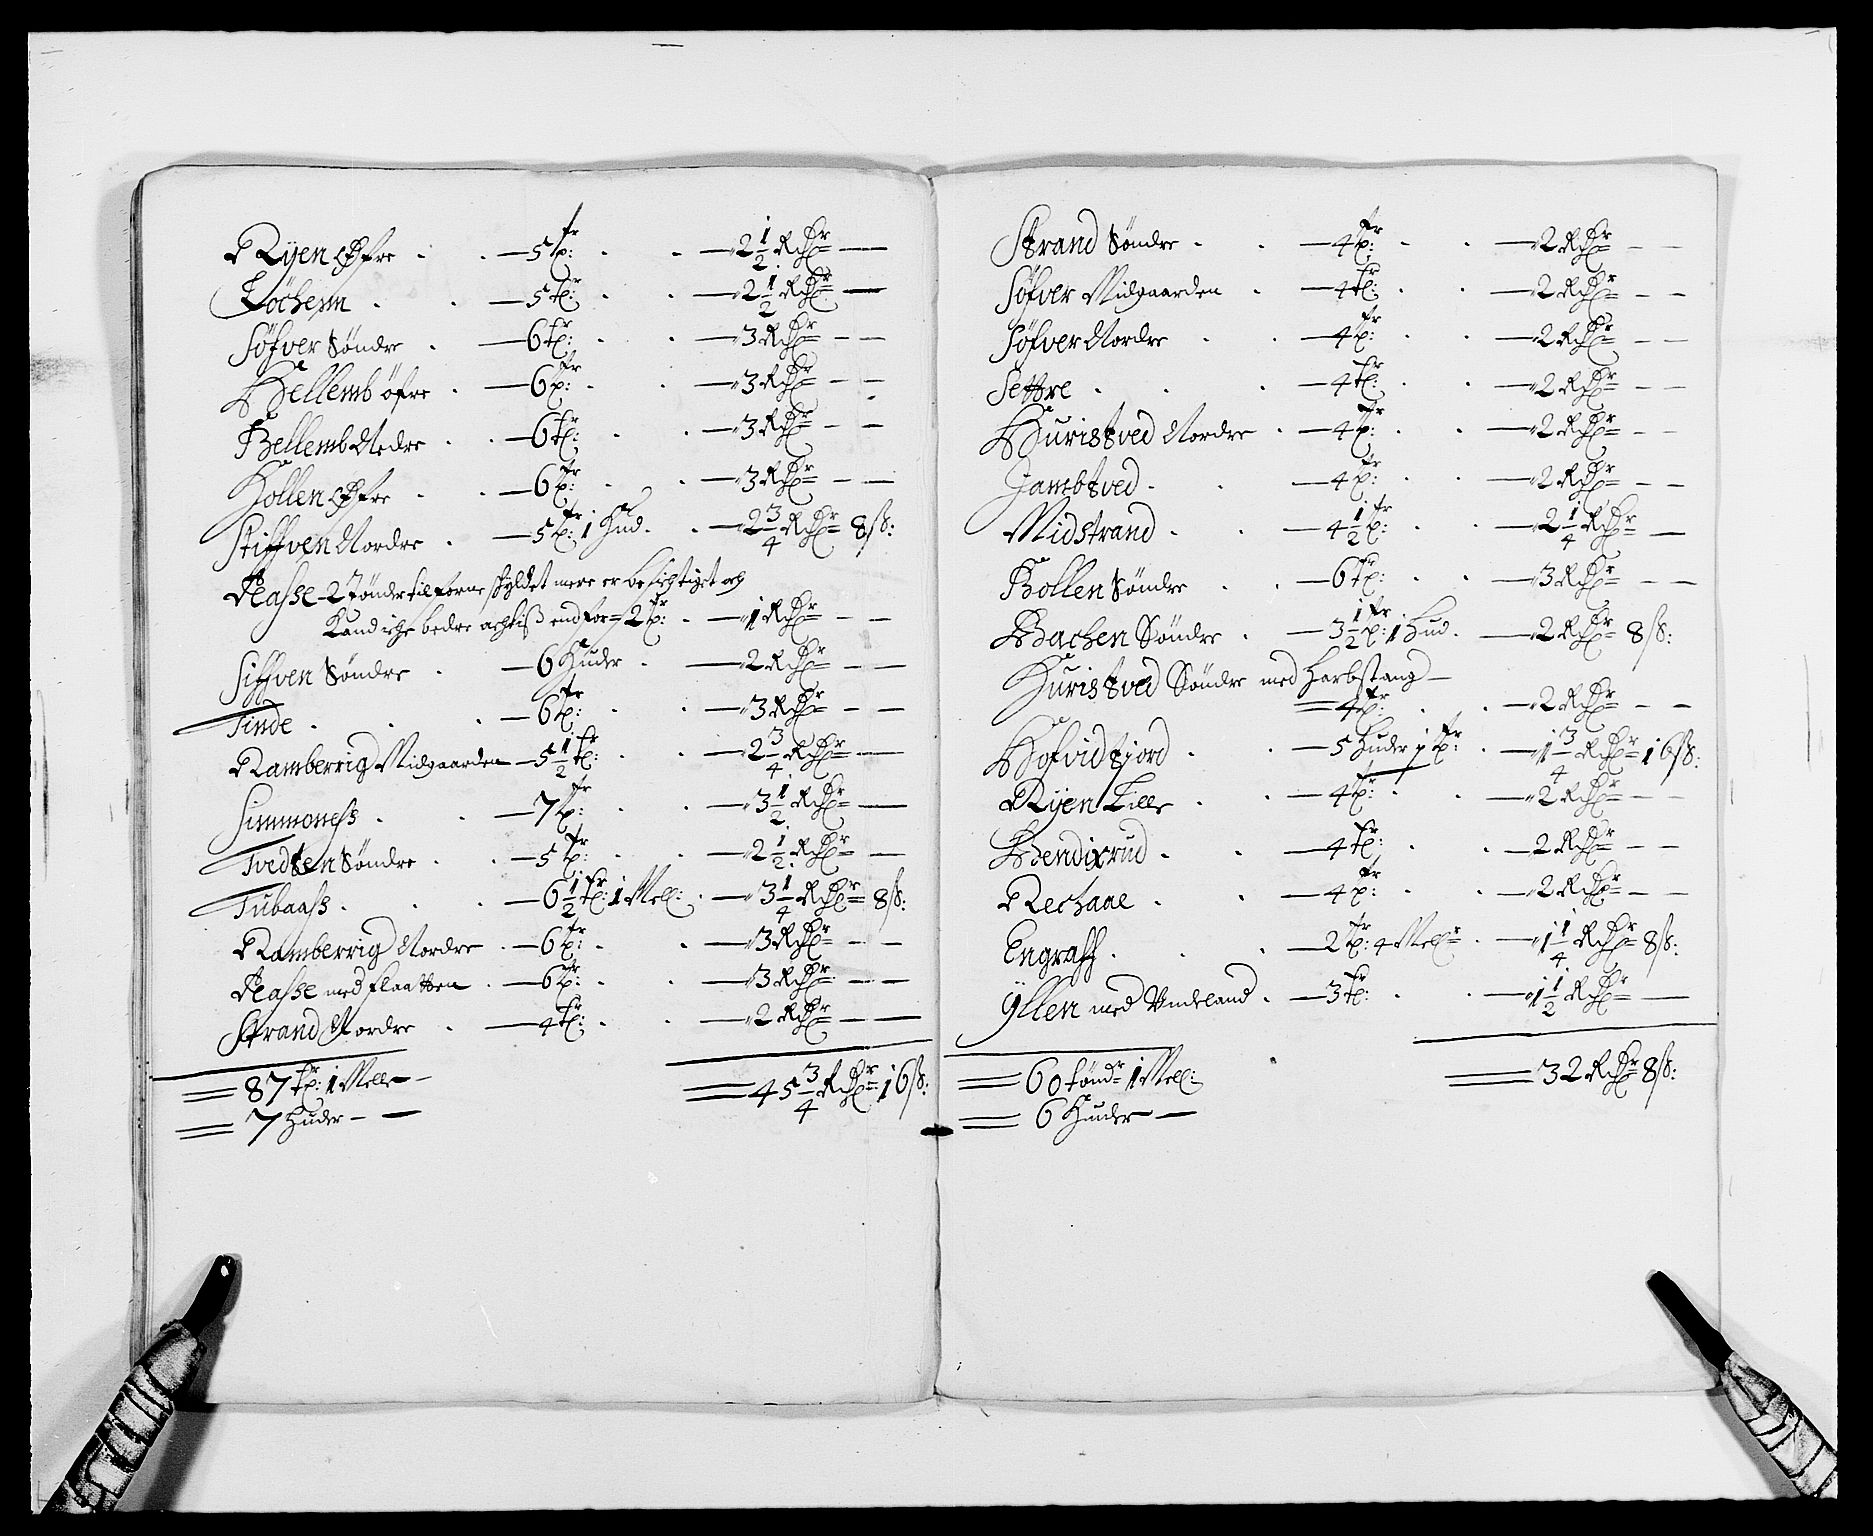 Ryen Øfre - 5 tr: - 2 1/2 Rdr
Löchenn - 5 tr: - 2 1/2 Rdr
Söfver Söndre - 6 tr: - 3 Rdr
Hellemb öfre - 6 tr: - 3 Rdr
Hellemb Nedre - 6 tr: - 3 Rdr
Kollen Øfre - 6 tr: - 3 Rdr
Stiffven Nordre - 5 tr: 1 Hud - 2 3/4 Rdr 8 ß:
Aasse 2 Tönder tilforne schyldet mere er besichtiget och
Kand iche bedre achtiß end for 2 tr: - 1 Rdr
Siffven Söndre - 6 Huder - 2 Rdr
Tinde - 6 tr: - 3 Rdr
Ramberrig Midgaarden - 5 1/2 tr: - 2 3/4 Rdr
Simmoness - 7 tr: - 3 1/2 Rdr
Tvedten Söndre - 5 tr: - 2 1/2 Rdr
Tubaass - 6 1/2 tr: 1 Mell: - 3 1/4 Rdr 8 ß:
Ramberrig Nordre - 6 tr: - 3 Rdr
Aasse med flaatten - 6 tr: - 3 Rdr
Strand Nordre - 4 tr: - 2 Rdr
87 tr: 1 Melle - 45 3/4 Rdr 16 ß:
7 Huder
Strand Söndre - 4 tr: - 2 Rdr
Söfver Midgaarden - 4 tr: - 2 Rdr
Söfver Nordre - 4 tr: - 2 Rdr
Settre - 4 tr: - 2 Rdr
Huristved Nordre - 4 tr: - 2 Rdr
Jambtved - 4 tr: - 2 Rdr
Midstrand - 4 1/2 tr: - 2 1/4 Rdr
Kollen Söndre - 6 tr: - 3 Rdr
Bachen Söndre - 3 1/2 tr: 1 Hud - 2 Rdr 8 ß:
Huristved Söndre med Harbstang
4 tr: - 2 Rdr
Hofvidfjord - 5 Huder 1 tr: - 1 3/4 Rdr 16 ß:
Ryen Lille - 4 tr: - 2 Rdr
Bendixrud - 4 tr: - 2 Rdr
Rechaae - 4 tr: - 2 Rdr
Engraff - 2 tr: 4 Meller - 1 1/4 Rdr 8 ß:
Ÿllen med Vindeland - 3 tr: - 1 1/2 Rdr
60 töndr 1 Mell: - 32 Rdr 8 ß:
6 Huder